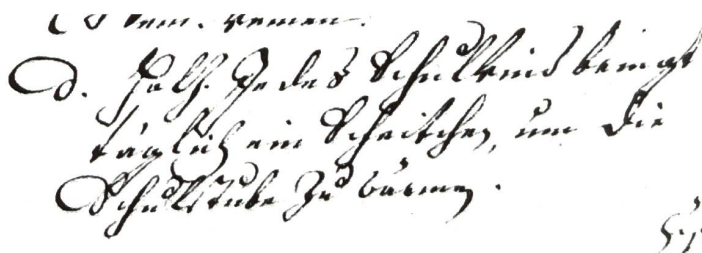 d. Holz. Jedes Schulkind bringt
täglich ein Scheitchen, um die
Schulstube zu wärmen.